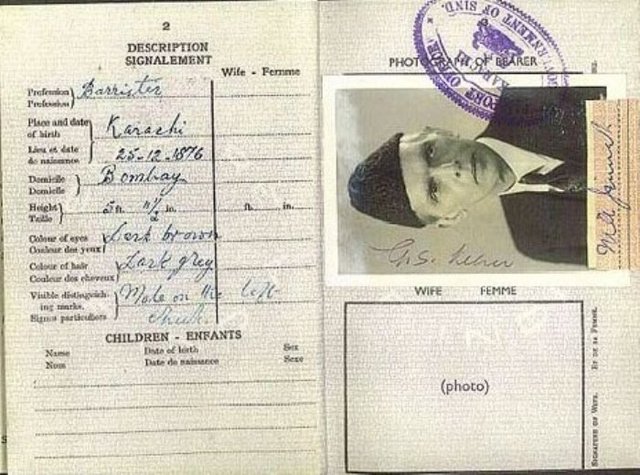 2
DESCRIPTION
SIGNALEMENT
Wife - Femme
Profession
Profession
Barrister
Place and date
of birth
Karachi
Lieu et date
de naissance
25-12-1876
Domicile
Domicile
Bombay
Height
Taille
5 ft. 11½ in.
ft. in.
Colour of eyes
Couleur des yeux
Dark brown
Colour of hair
Couleur des cheveux
Dark grey
Visible distinguish-
ing marks.
Signes particuliers
Mole on the left
Cheek
CHILDREN - ENFANTS
Name
Nom
Date of birth
Date de naissance
Sex
Sexe
PHOTOGRAPH OF BEARER
PASSPORT OFFICE
KARACHI
GOVERNMENT OF SIND.
M A Jinnah
WIFE FEMME
(photo)
SIGNATURE OF WIFE.
ET DE SA FEMME.